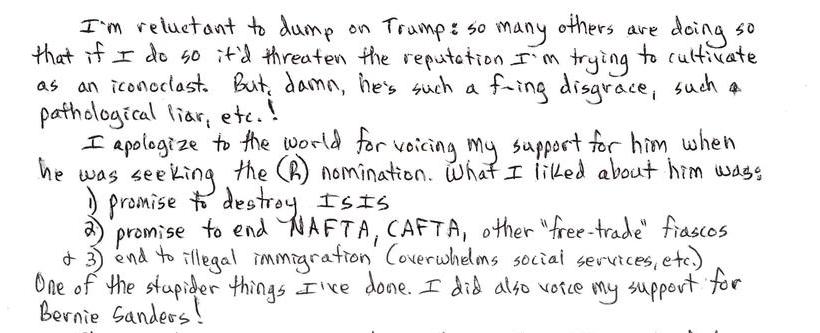 I'm reluctant to dump on Trump: so many others are doing so
that if I do so it'd threaten the reputation I'm trying to cultivate
as an iconoclast. But, damn, he's such a f-ing disgrace, such a
pathological liar, etc.!
I apologize to the world for voicing my support for him when
he was seeking the (R) nomination. What I liked about him was:
1) promise to destroy ISIS
2) promise to end NAFTA, CAFTA, other "free-trade" fiascos
& 3) end to illegal immigration (overwhelms social services, etc.)
One of the stupider things I've done. I did also voice my support for
Bernie Sanders!